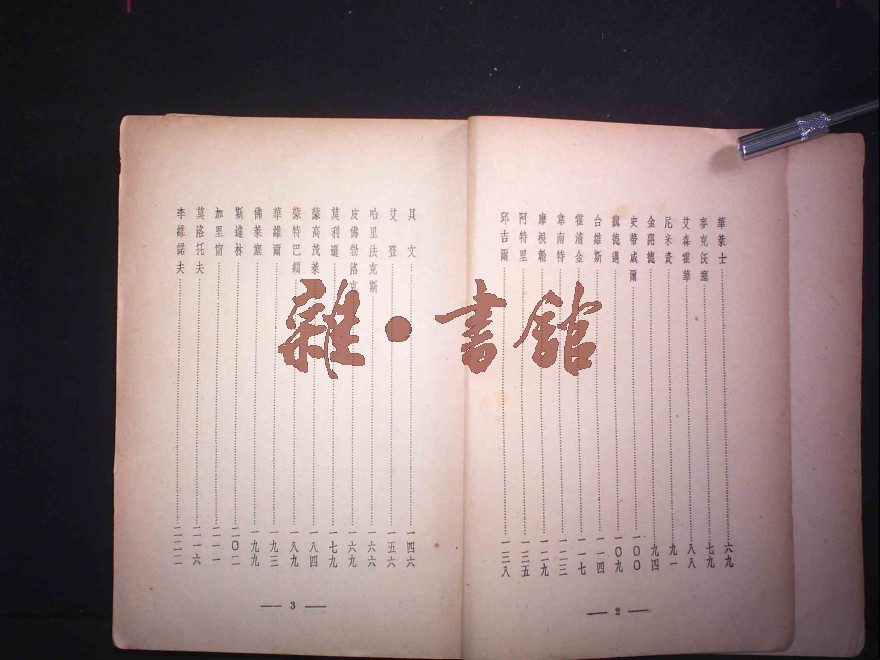 華萊士……六九
麥克沃塞……七九
艾森霍華……八八
尼米資……九一
金開德……九四
史蒂威爾……一〇〇
魏德邁……一〇九
台維斯……一一四
霍浦金……一一七
韋南特……一二三
摩根韜……一二九
阿特里……一三五
邱吉爾……一三八
— 2 —
貝文……一四六
艾登……一五六
哈里法克斯……一六六
皮佛勃洛克……一六九
莫利遜……一七九
蒙高茂萊……一八四
蒙特巴頓……一八九
華維爾……一九三
佛萊塞……一九九
斯達林……二〇二
加里甯……二一一
莫洛托夫……二一六
李維諾夫……二二二
— 3 —
雜·書館